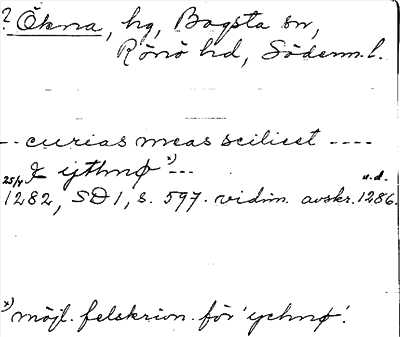 ? Ökna, hg, Bogsta sn,
Rönö hd, Söderm.l.
-- curias meas scilicet ----
& ijthnø x) ---
25/4 1282, SD 1, s. 597. vidim. avskr. u.d. 1286.
x) möjl. felskrivn. för 'ychnø'.